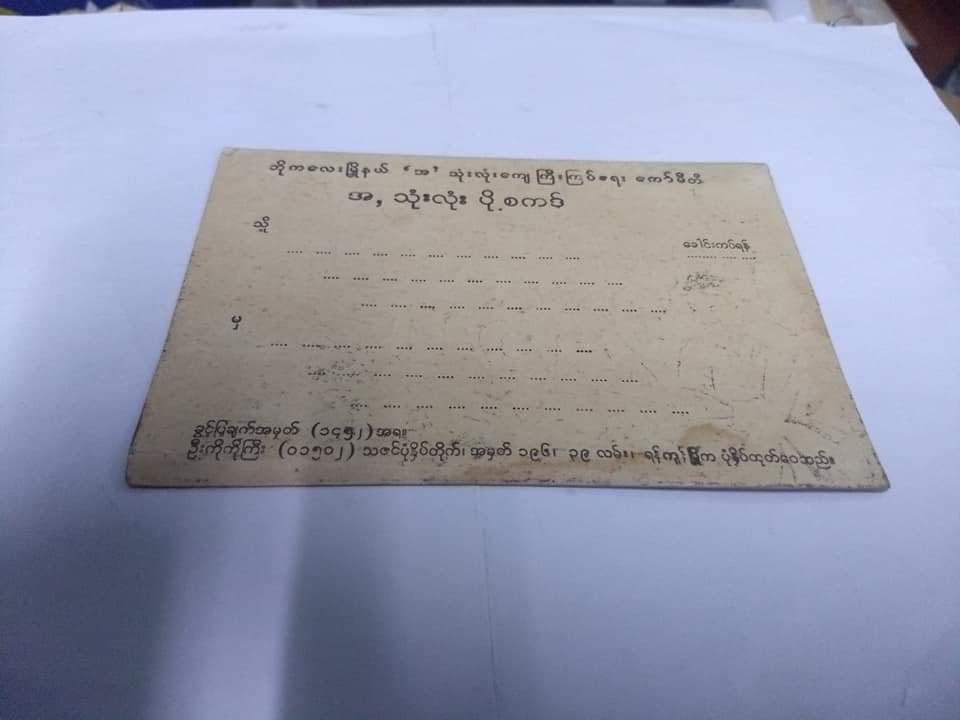 ဘိုကလေးမြို့နယ် ‘အ’ သုံးလုံးကျေ ကြီးကြပ်ရေး ကော်မီတီ
အ, သုံးလုံး ပို့စကဒ်
သို့
ခေါင်းကပ်ရန်
မှ
ခွင့်ပြုချက်အမှတ် (၁၄၅၂) အရ။
ဦးကိုကိုကြီး (၀၁၅၀၂) သဇင်ပုံနှိပ်တိုက်၊ အမှတ် ၁၉၆၊ ၃၉ လမ်း၊ ရန်ကုန်မြို့က ပုံနှိပ်ထုတ်ဝေသည်။